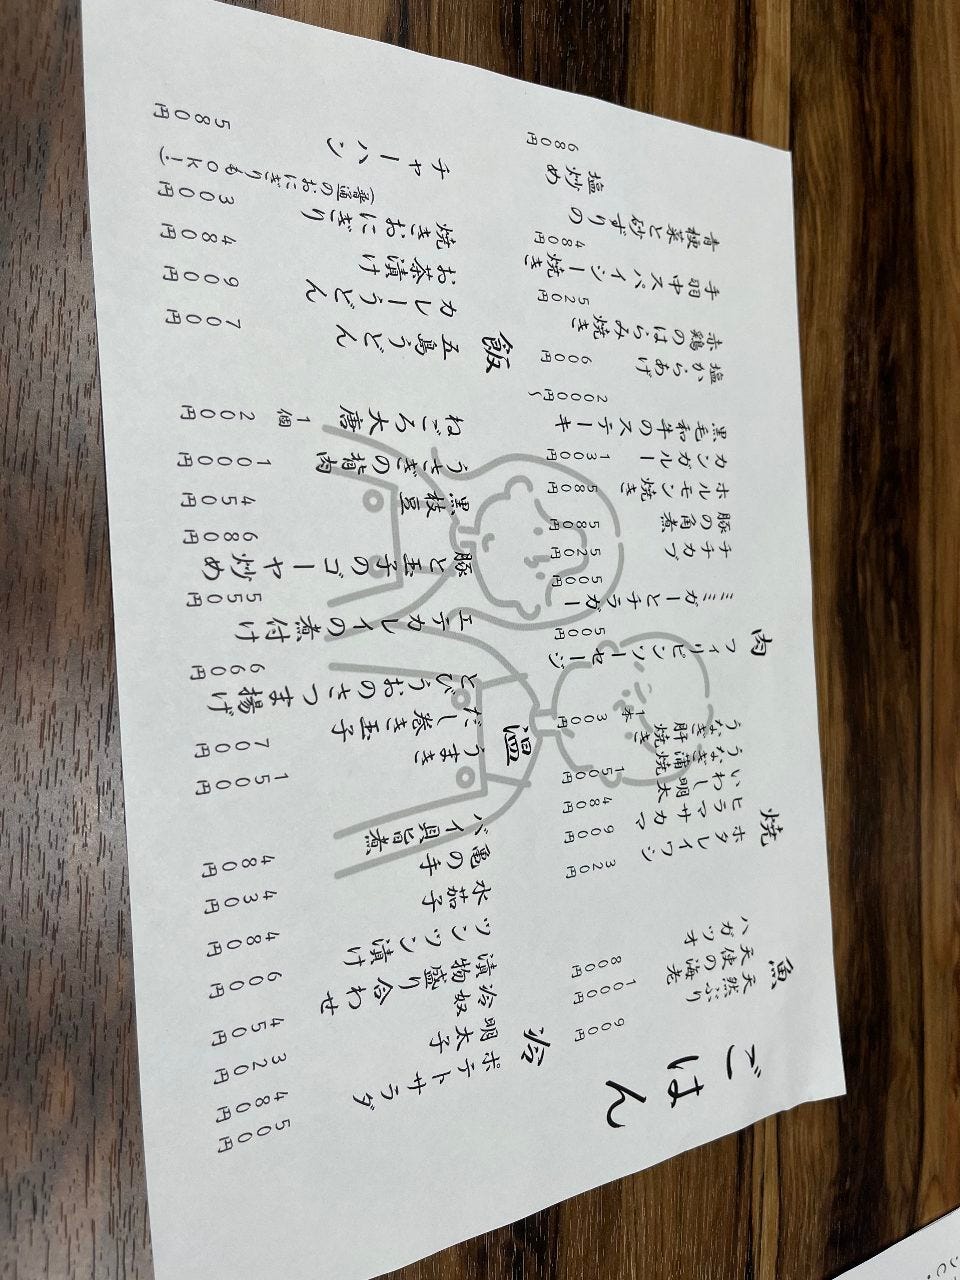 ごはん
魚
天然ぶり 900円
天使の海老 1000円
ハガツオ 800円
焼
ホタレイワシ 320円
ヒラマサカマ 900円
いわし明太 480円
うなぎ蒲焼 1500円
うなぎ肝焼き 1本 300円
肉
フィリピンソーセージ 500円
ミミガーとチラガー 500円
チチカブ 520円
豚の角煮 580円
ホルモン焼き 580円
カンガルー 1300円
黒毛和牛のステーキ 2000円〜
塩からあげ 600円
赤鶏のはらみ焼き 520円
手羽中スパイシー焼き 480円
青梗菜と砂ずりの
塩炒め 680円
冷
ポテトサラダ 500円
明太子 480円
冷奴 320円
漬物盛り合わせ 450円
ツンツン漬け 600円
水茄子 480円
亀の手 430円
バイ貝旨煮 480円
温
うまき 1500円
だし巻き玉子 700円
とびうおのさつま揚げ 660円
エテカレイの煮付け 550円
豚と玉子のゴーヤ炒め 680円
黒枝豆 450円
うさぎの指肉 1000円
ねごろ大唐 1個 200円
飯
五島うどん 700円
カレーうどん 900円
お茶漬け 480円
焼きおにぎり 300円
(普通のおにぎりもOK!)
チャーハン 580円